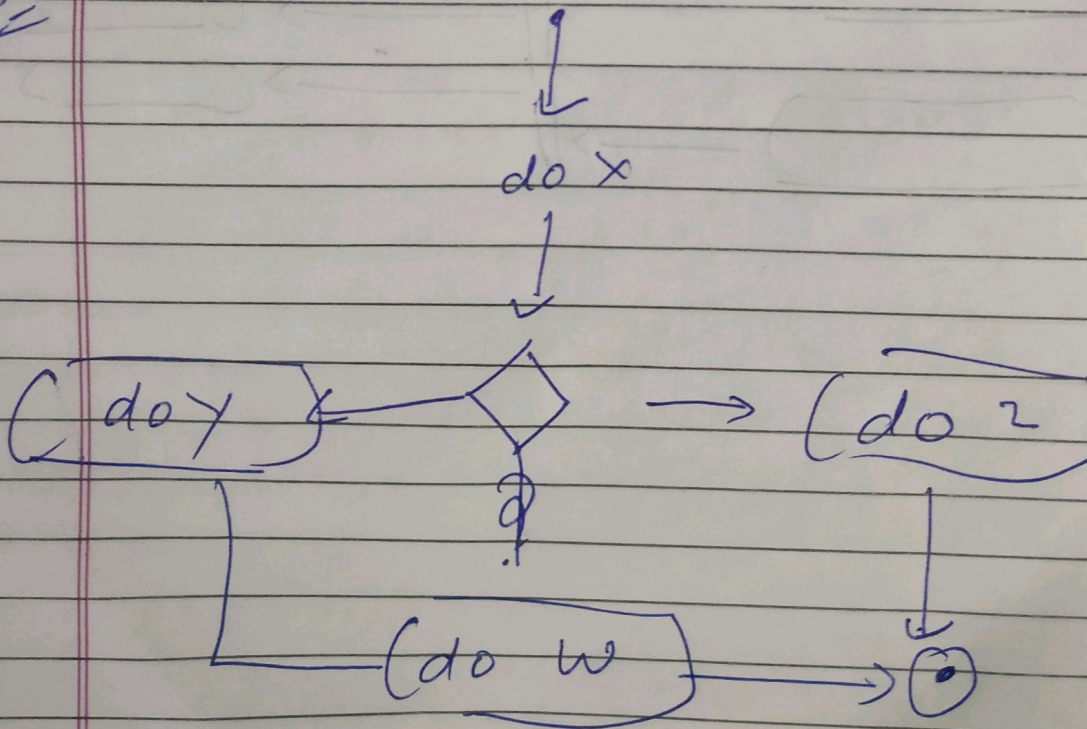 do x
do y
do z
?
do w